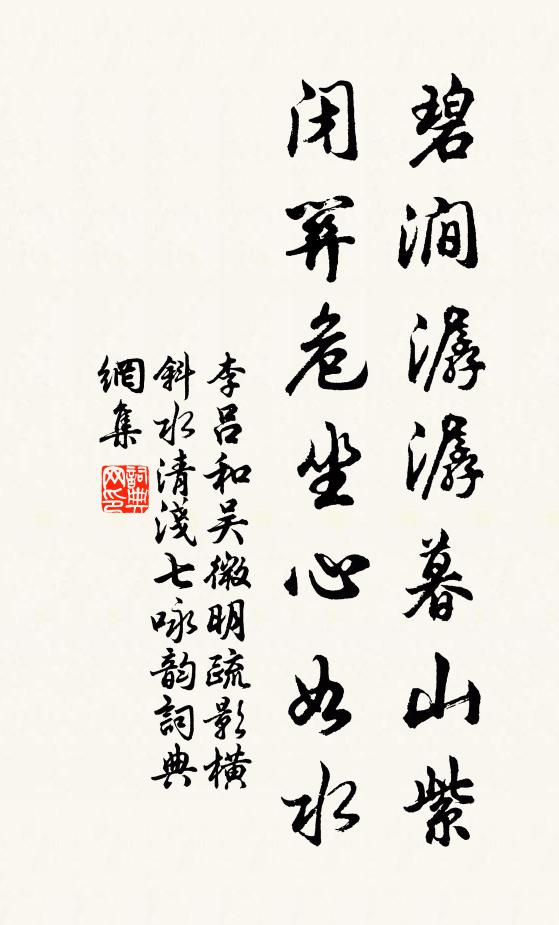 碧澗潺潺暮山紫
閉門危坐心如水
李呂和吴微明疏影橫
斜水清淺七咏韵詞典
網集
詞典網印